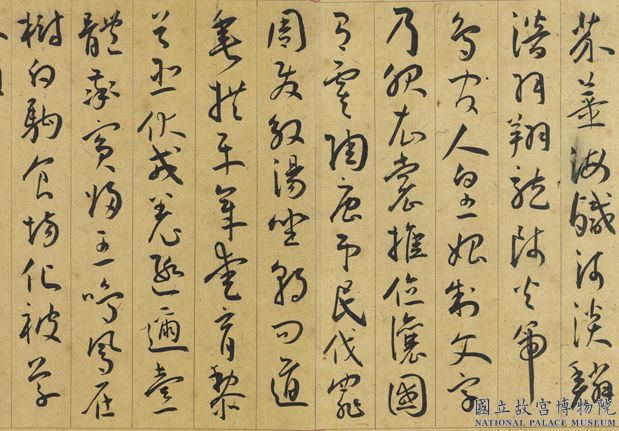 芥薑海鹹河淡鱗
潛羽翔龍師火帝
鳥官人皇始制文字
乃服衣裳推位讓國
有虞陶唐弔民伐罪
周發殷湯坐朝問道
垂拱平章愛育黎
首臣伏戎羌遐邇壹
體率賓歸王鳴鳳在
樹白駒食場化被草
國立故宮博物院
NATIONAL PALACE MUSEUM